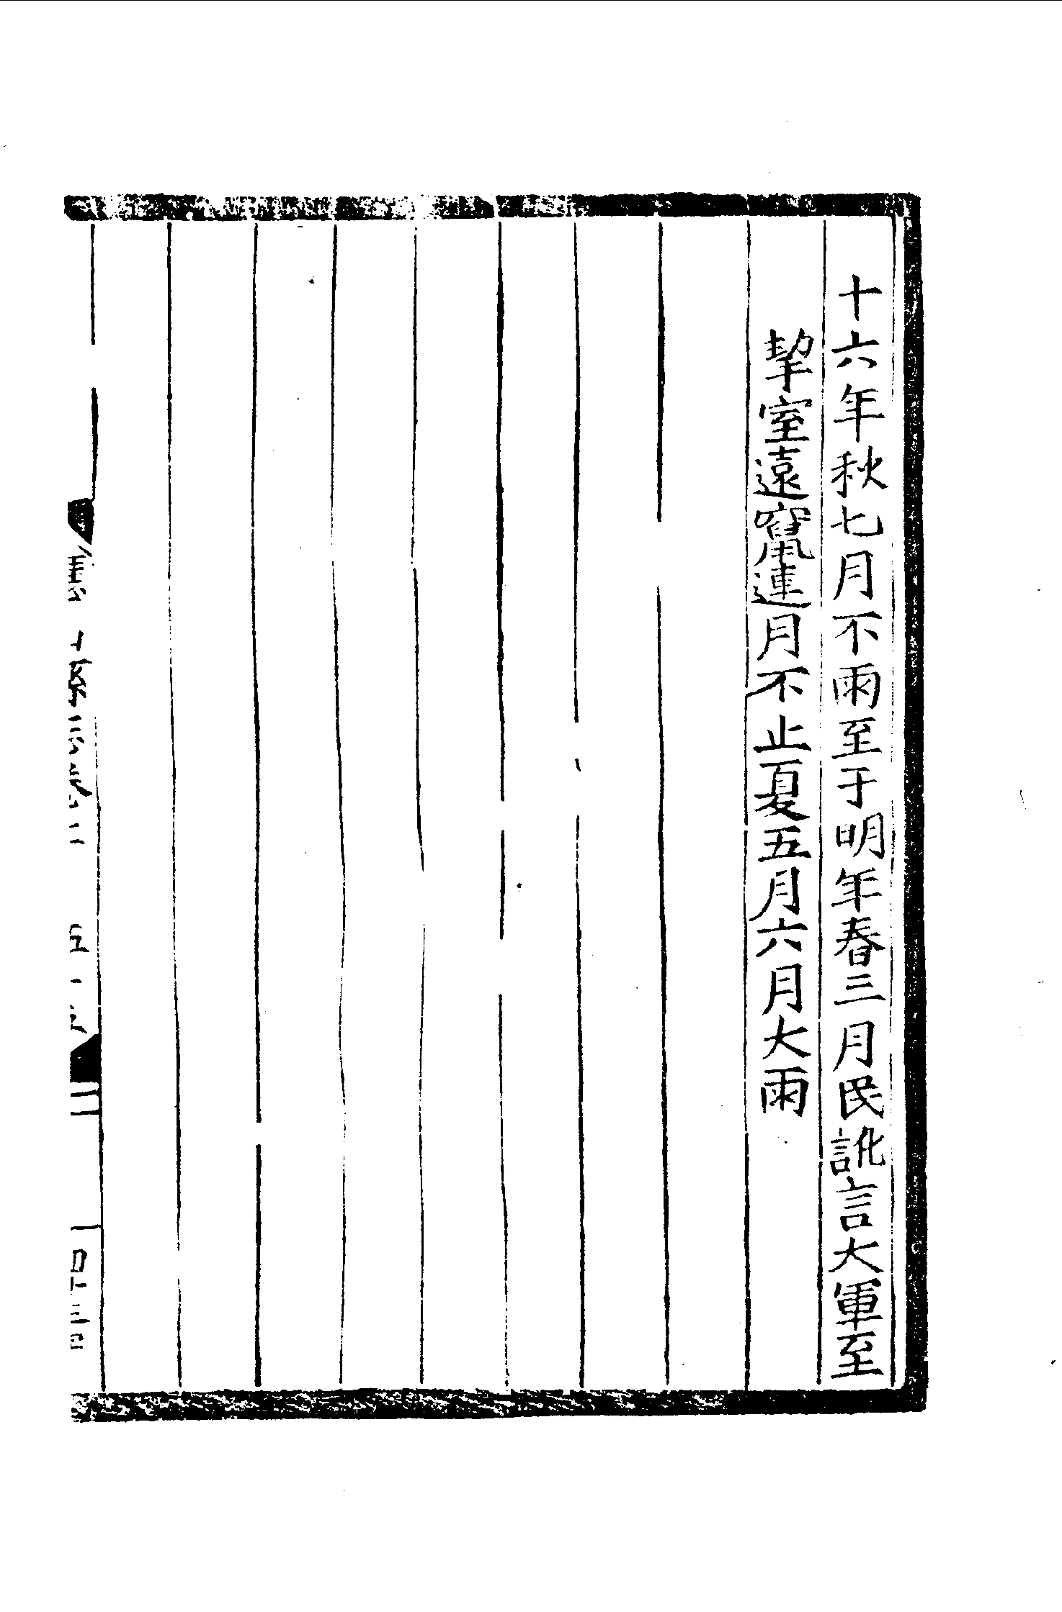 十六年秋七月不雨至于明年春三月民訛言大軍至
挈室遠竄連月不止夏五月六月大雨